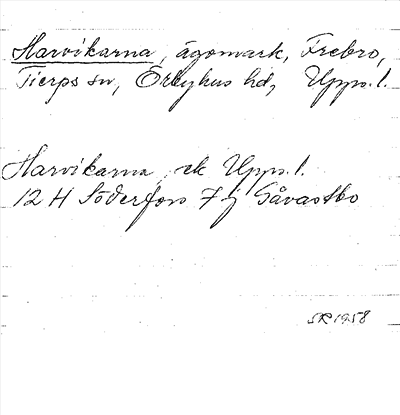 Harvikarna, ägomark, Frebro,
Tierps sn, Örbyhus hd, Upps. l.
Harvikarna, ek Upps. l.
12 H Söderfors 7 j Gåvastbo
SR 1958